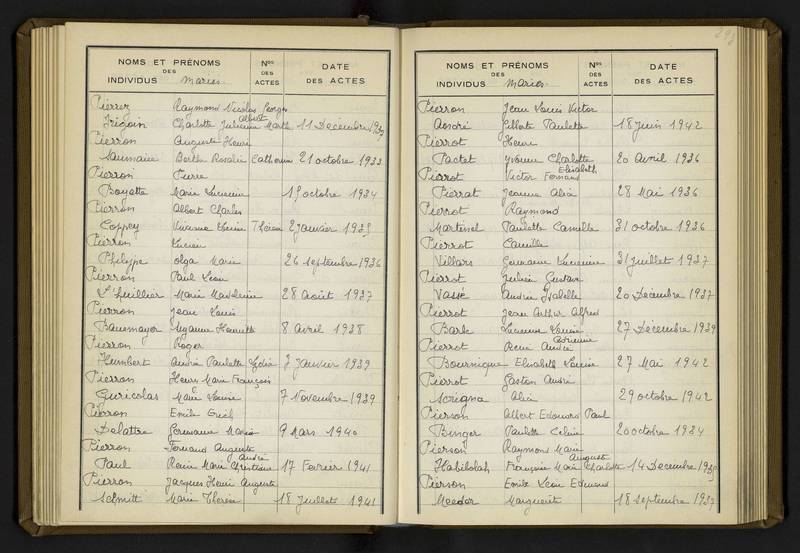 NOMS ET PRÉNOMS
DES
INDIVIDUS Mariés
Nos
DES
ACTES
DATE
DES ACTES
Pierrez Raymond Nicolas Georges
Albert
Charlotte Julienne Marthe 11 Décembre 1939
Pierron Auguste Henri
Berthe Rosalie Catherine 21 octobre 1933
Pierron Pierre
Boyette Marie Lucienne 19 octobre 1934
Pierron Albert Charles
Coppey Vivienne Thérèse 2 janvier 1935
Pierron Lucien
Philippe Olga Marie 26 septembre 1936
Pierron Paul Léon
L'huillier Marie Madeleine 28 août 1937
Pierron Jean Louis
Baumayer Suzanne Henriette 8 avril 1938
Pierron Roger
Humbert Andrée Paulette Lydie 7 janvier 1939
Pierron Henri Marie François
Guricolas Marie Louise 7 novembre 1939
Pierron Emile
Delattre Germaine Marie 9 Mars 1940
Pierron Fernand Auguste
André
Paul Renée Marie Christiane 17 Février 1941
Pierron Jacques Henri Auguste
Schmitt Marie Thérèse 18 Juillet 1941
292
NOMS ET PRÉNOMS
DES
INDIVIDUS Mariés
Nos
DES
ACTES
DATE
DES ACTES
Pierron Jean Louis Victor
André Gilberte Paulette 18 juin 1942
Pierrot Henri
Pactet Yvonne Charlotte 20 avril 1936
Elisabeth
Pierrot Victor Fernand
Pierrat Jeanne Alice 28 Mai 1936
Pierrot Raymond
Martinel Paulette Camille 31 octobre 1936
Pierrot Camille
Villars Germaine Lucienne 31 juillet 1937
Pierrot Julien Gustave
Vasse Andrée Isabelle 20 Décembre 1937
Pierrot Jean Arthur Alfred
Barle Lucienne Louise 27 Décembre 1939
Adrienne
Pierrot René André
Bournique Elisabeth Louise 27 Mai 1942
Pierrot Gaston André
Scrigna Alice 29 octobre 1942
Pierson Albert Edouard Paul
Binger Paulette Céline 20 octobre 1934
Pierson Raymond Marie
Auguste
Habilolah Françoise Marie Charlotte 14 Décembre 1935
Pierson Emile Léon Edmond
Meedor Marguerite 18 septembre 1937